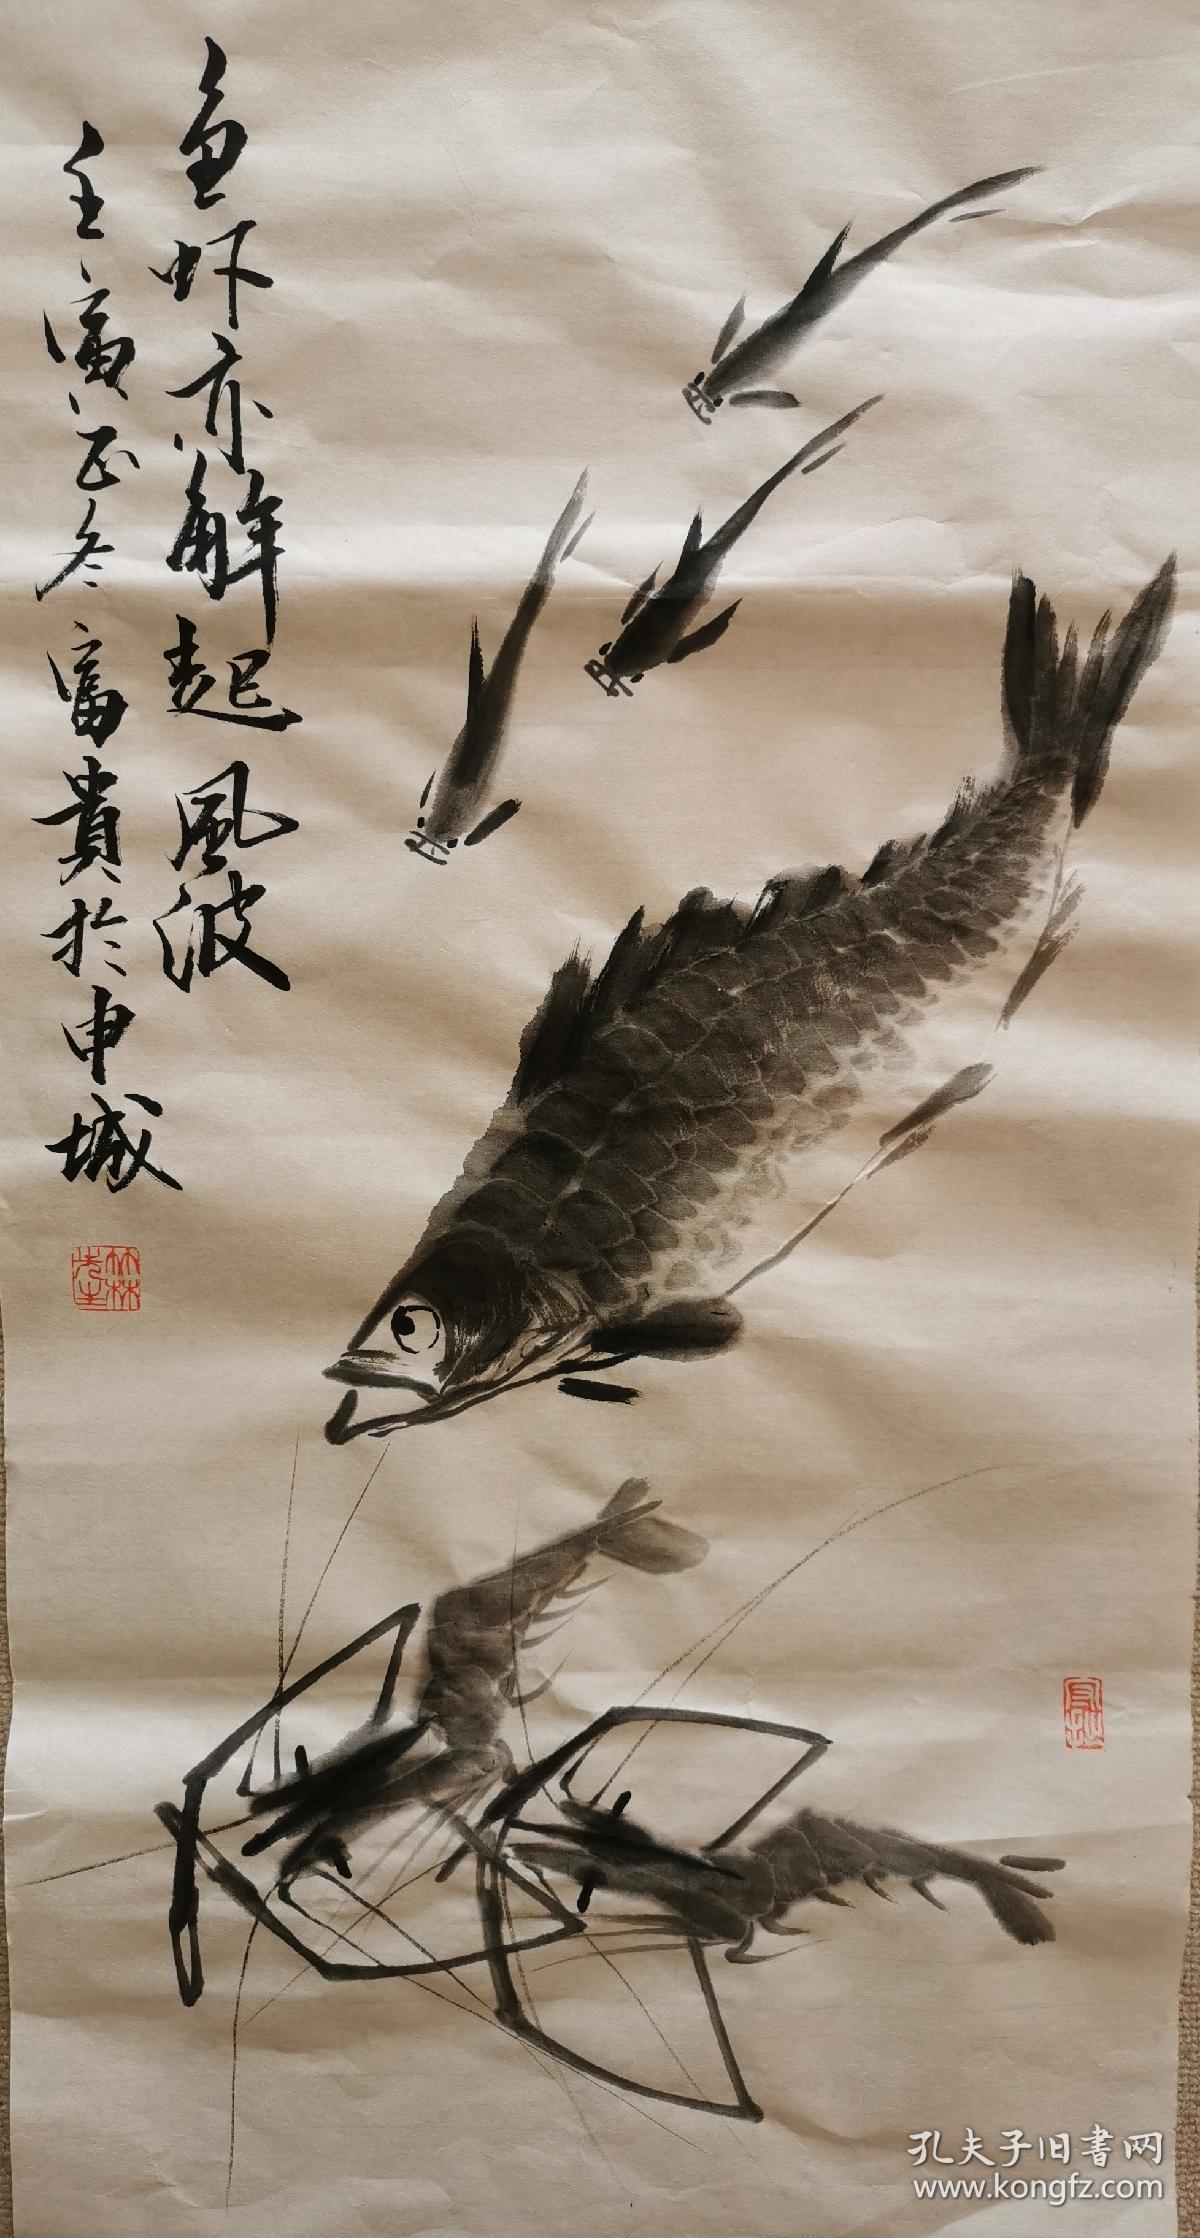 鱼虾亦解起風波
壬寅正冬富貴於申城
孔夫子旧書网
www.kongfz.com